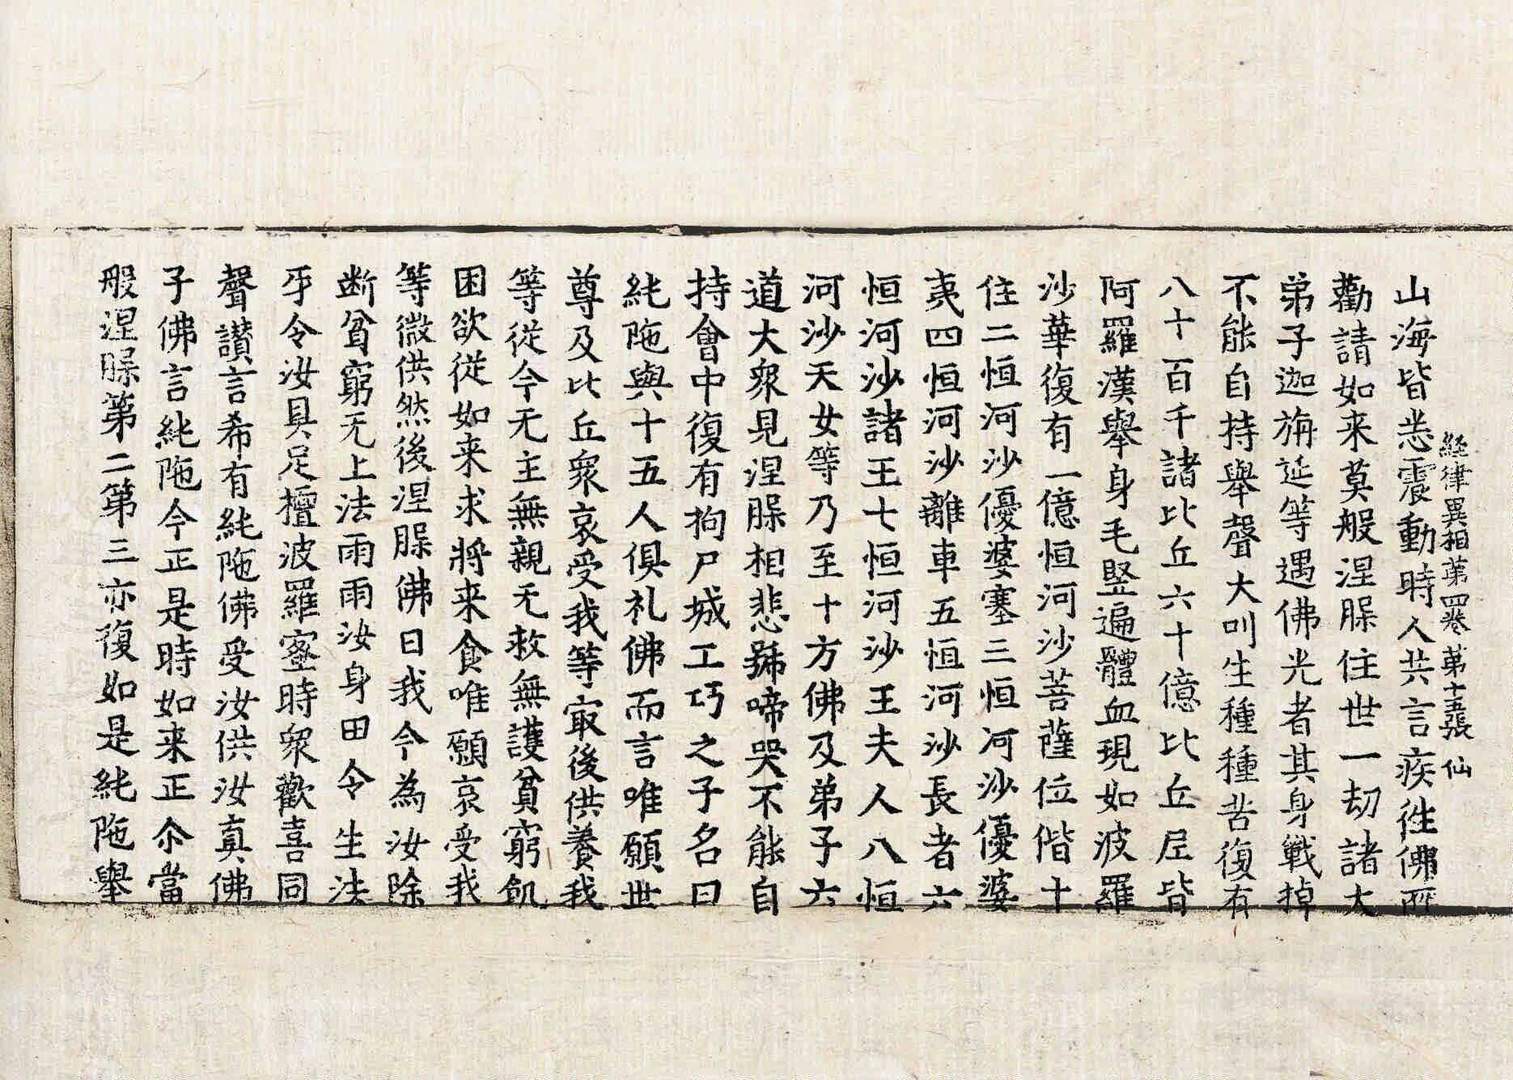 經律異相苐四卷 苐十五張 仙
山海皆悉震動時人共言疾徃佛所
勸請如来莫般涅𦛨住世一劫諸大
弟子迦旃延等遇佛光者其身戰掉
不能自持舉聲大叫生種種苦復有
八十百千諸比丘六十億比丘尼皆
阿羅漢舉身毛竪遍體血現如波羅
沙華復有一億恒河沙菩薩位偕十
住二恒河沙優婆塞三恒河沙優婆
夷四恒河沙離車五恒河沙長者六
恒河沙諸王七恒河沙王夫人八恒
河沙天女等乃至十方佛及弟子六
道大衆見涅𦛨相悲號啼哭不能自
持會中復有拘尸城工巧之子名曰
純陁與十五人俱礼佛而言唯願世
尊及比丘衆哀受我等冣後供養我
等從今无主無親无救無護貧窮飢
困欲從如来求將来食唯願哀受我
等微供然後涅𦛨佛曰我今為汝除
断貧窮无上法雨雨汝身田令生法
牙令汝具足檀波羅蜜時衆歡喜同
聲讃言希有純陁佛受汝供汝真佛
子佛言純陁今正是時如来正尒當
般涅𦛨第二第三亦復如是純陁舉